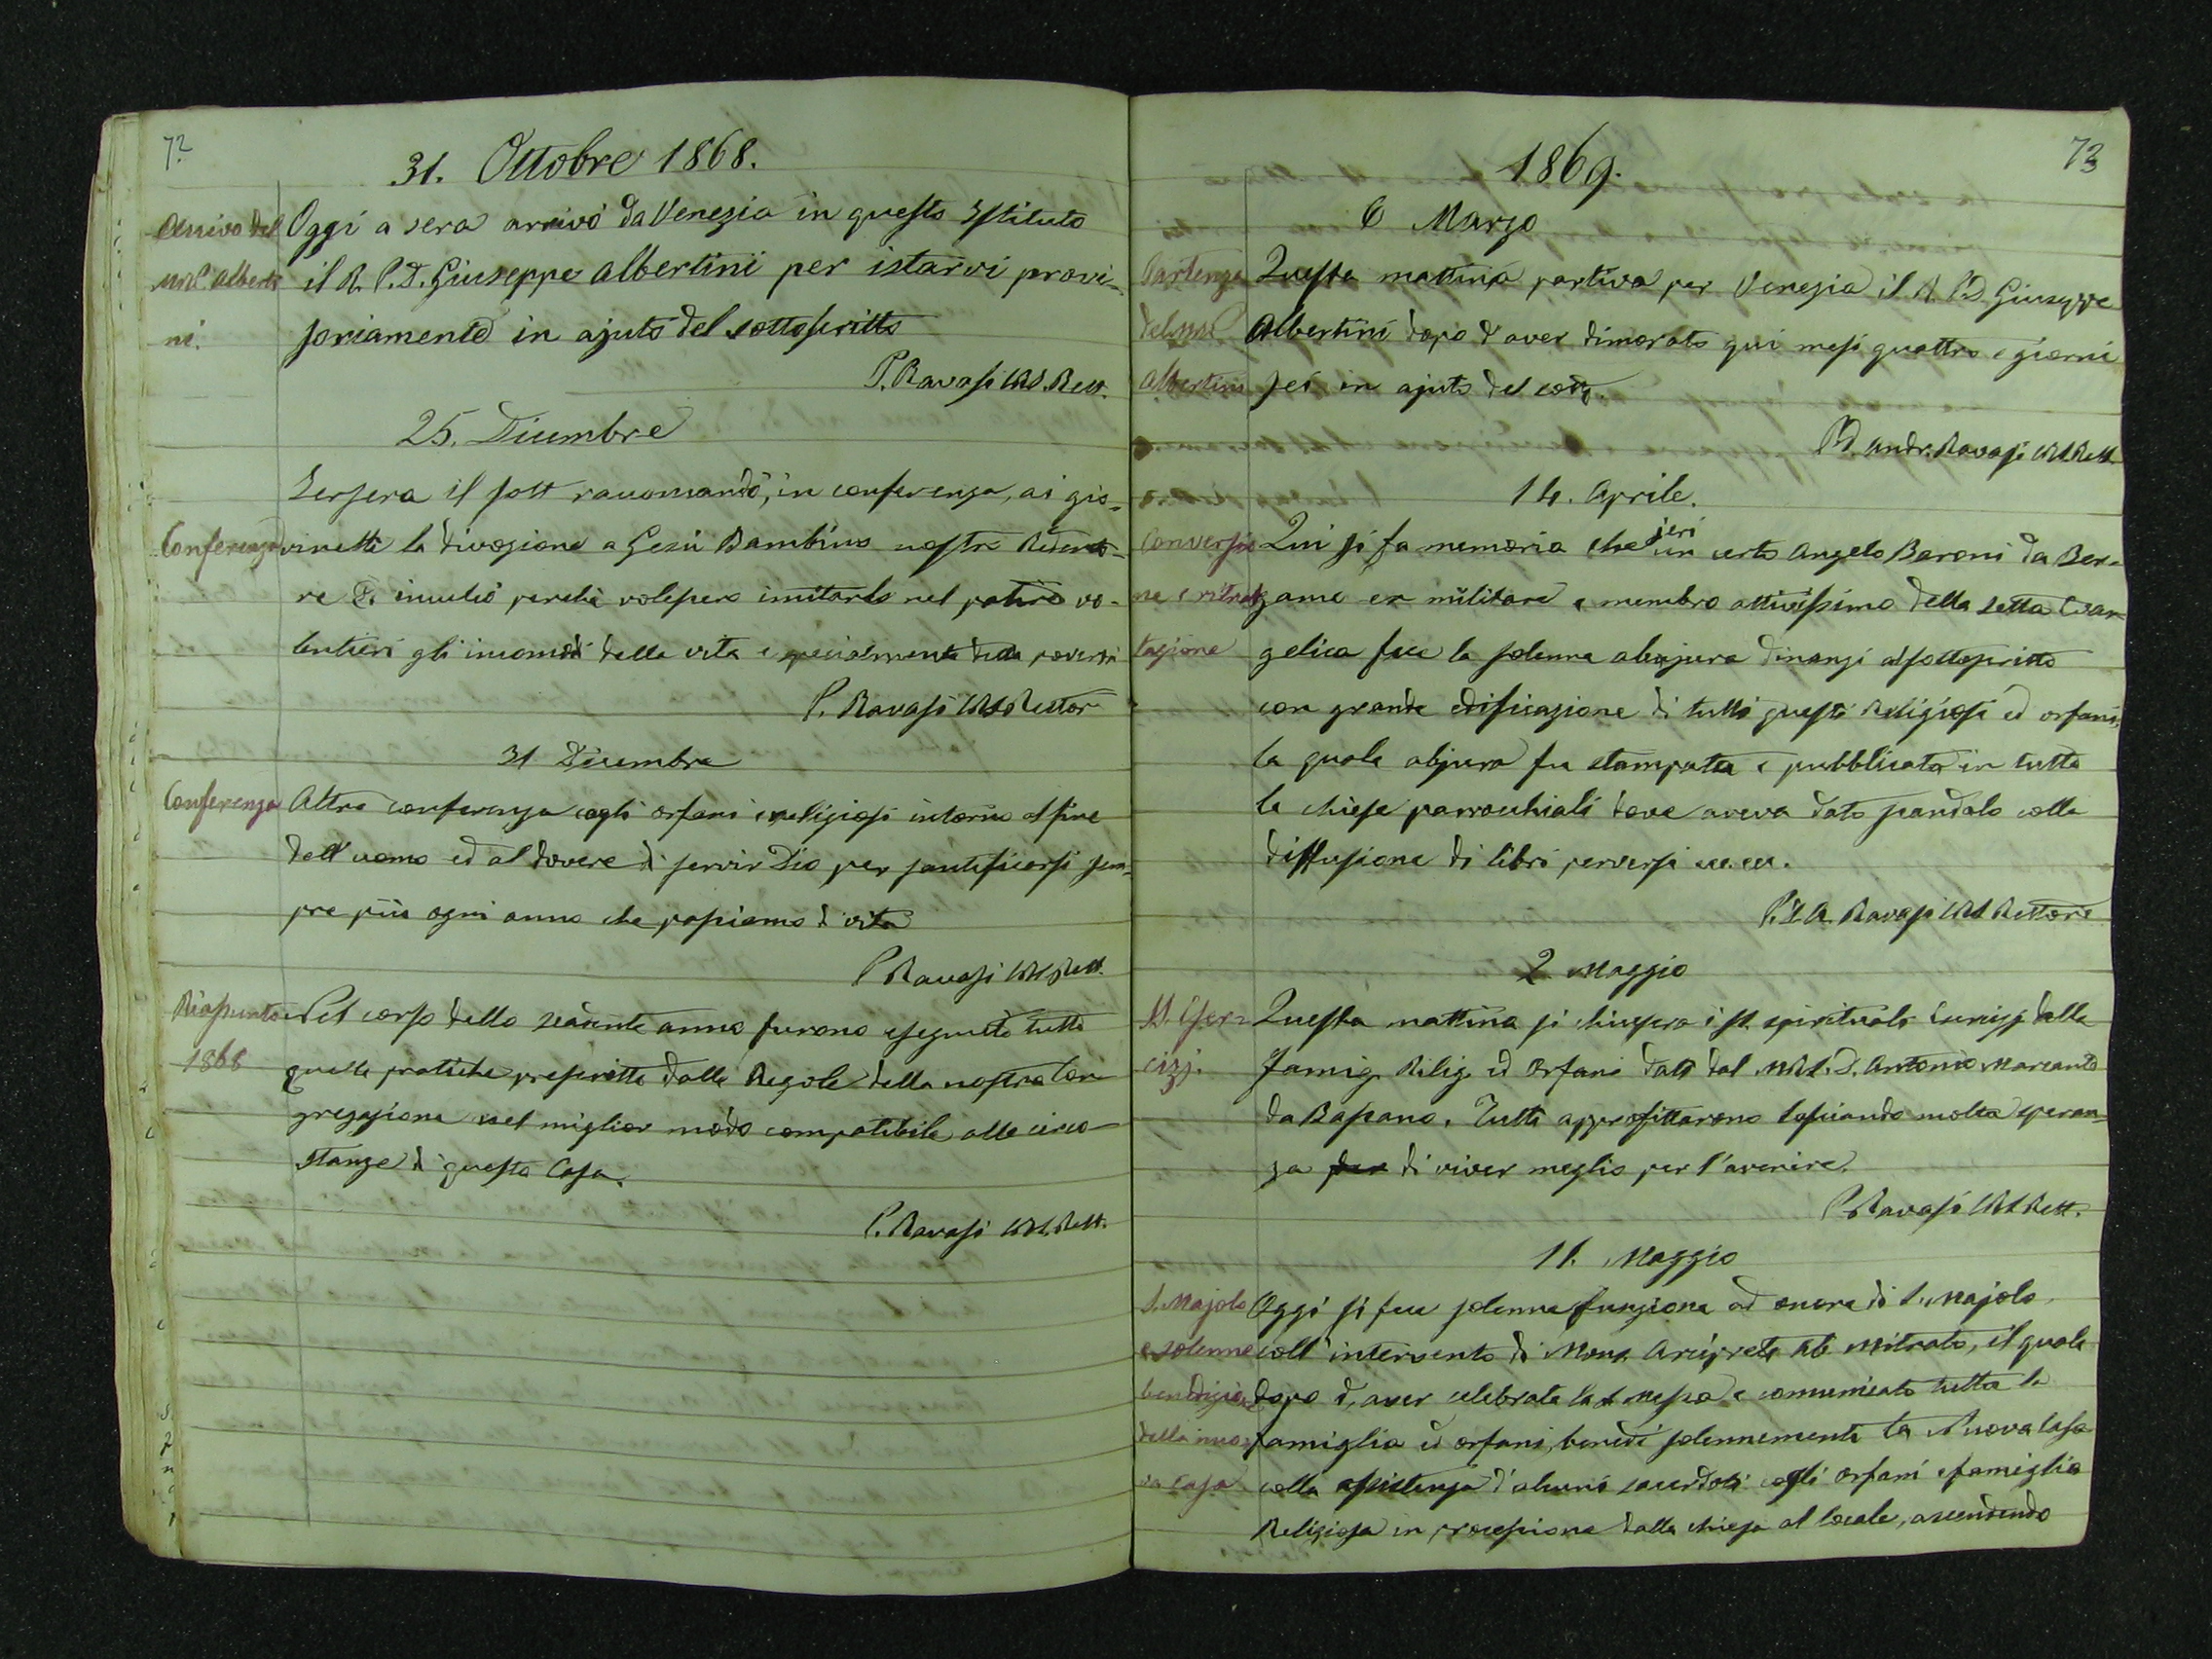 72
31. Ottobre 1868.
Arrivo del Oggi a sera arrivò da Venezia in questo Istituto
MRP. Alberti il R. P. D. Giuseppe Albertini per istarvi provi-
ni. soriamente in ajuto del sottoscritto
P. Ravasi CRS. Rett.
25. Dicembre
Jersera il sott raccomandò, in conferenza, ai gio-
Conferenza vinetti la divozione a Gesù Bambino nostro Redento-
re e inculcò perchè volessero imitarlo nel patire vo-
lentieri gli incomodi della vita e specialmente della povertà
P. Ravasi CRS Rettor
31 Dicembre
Conferenza Altra conferenza cogli orfani e religiosi intorno al fine
dell'uomo ed al dovere di servir Dio per santificarsi sem-
pre più ogni anno che passiamo di vita
P Ravasi CRS Rett.
Riassunto Nel corso dello scadente anno furono eseguite tutte
1868 quelle pratiche prescritte dalle Regole della nostra Con
gregazione nel miglior modo compatibile alle circo-
stanze di questa Casa.
P. Ravasi CRS. Rett.
73
1869.
6 Marzo
Partenza Questa mattina partiva per Venezia il R P.D. Giuseppe
del MRP Albertini dopo d'aver dimorato qui mesi quattro e giorni
Albertini sei in ajuto del sott.
P.D. Andr. Ravasi CRS. Rett.
14. Aprile.
Conversio Qui si fa memoria che jeri un certo Angelo Baroni da Ber-
ne e ritrat game ex militare e membro attivissimo della setta Evan
tazione gelica fece la solenne abjura dinanzi al sottoscritto
con grande edificazione di tutti questi Religiosi ed orfani,
la quale abjura fu stampata e pubblicata in tutte
le chiese parrocchiali dove aveva dato scandalo colla
diffusione di libri perversi ecc. ecc.
P. D. A. Ravasi CRS Rettore
2 Maggio
SS. Eser- Questa mattina si chiusero i SS. spirituali Esercizj della
cizj. famig. Relig. ed Orfani dati dal MRP. D. Antonio Marcanto
da Bassano. Tutti approfittarono lasciando molta speran-
za per di viver meglio per l'avenire.
P. Ravasi CRS Rett.
11. Maggio
S. Majolo Oggi si fece solenne funzione ad onore di S. Majolo
e solenne coll'intervento di Mons. Arciprete Ab. Mitrato, il quale
benedizione dopo d'aver celebrata la S. Messa e comunicato tutta la
della nuo- famiglia ed orfani, benedì solennemente la Nuova Casa
va casa colla assistenza d'alcuni sacerdoti cogli orfani e famiglia
Religiosa in processione dalla chiesa al locale, ascendendo